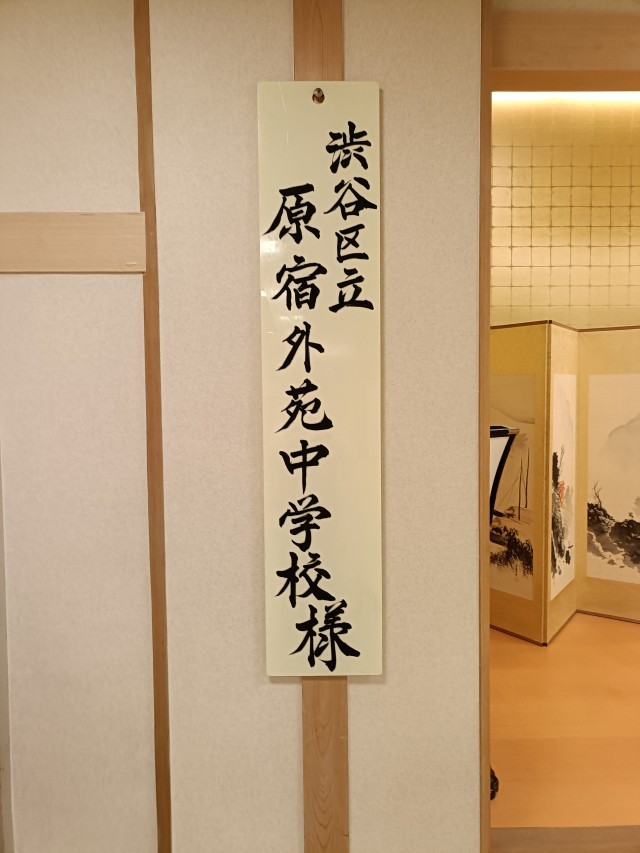 渋谷区立
原宿外苑中学校様